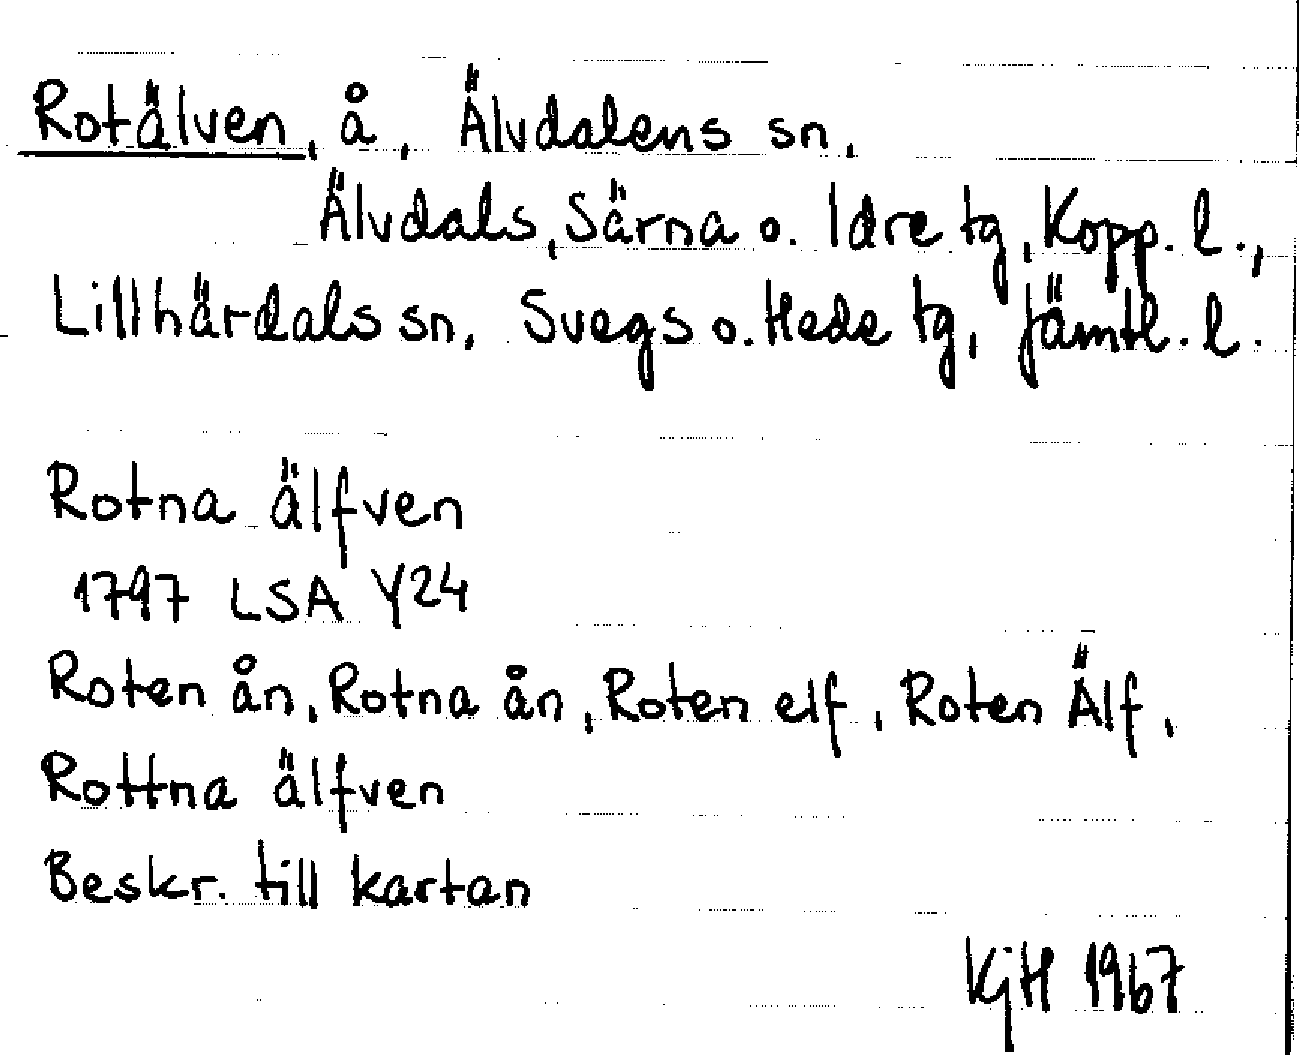 Rotälven, å, Älvdalens sn,
Älvdals, Särna o. Idre tg, Kopp. l.,
Lillhärdals sn, Svegs o. Hede tg, Jämtl. l.
Rotna älfven
1797 LSA Y24
Roten ån, Rotna ån, Roten elf, Roten Älf,
Rottna älfven
Beskr. till kartan
KjH 1967